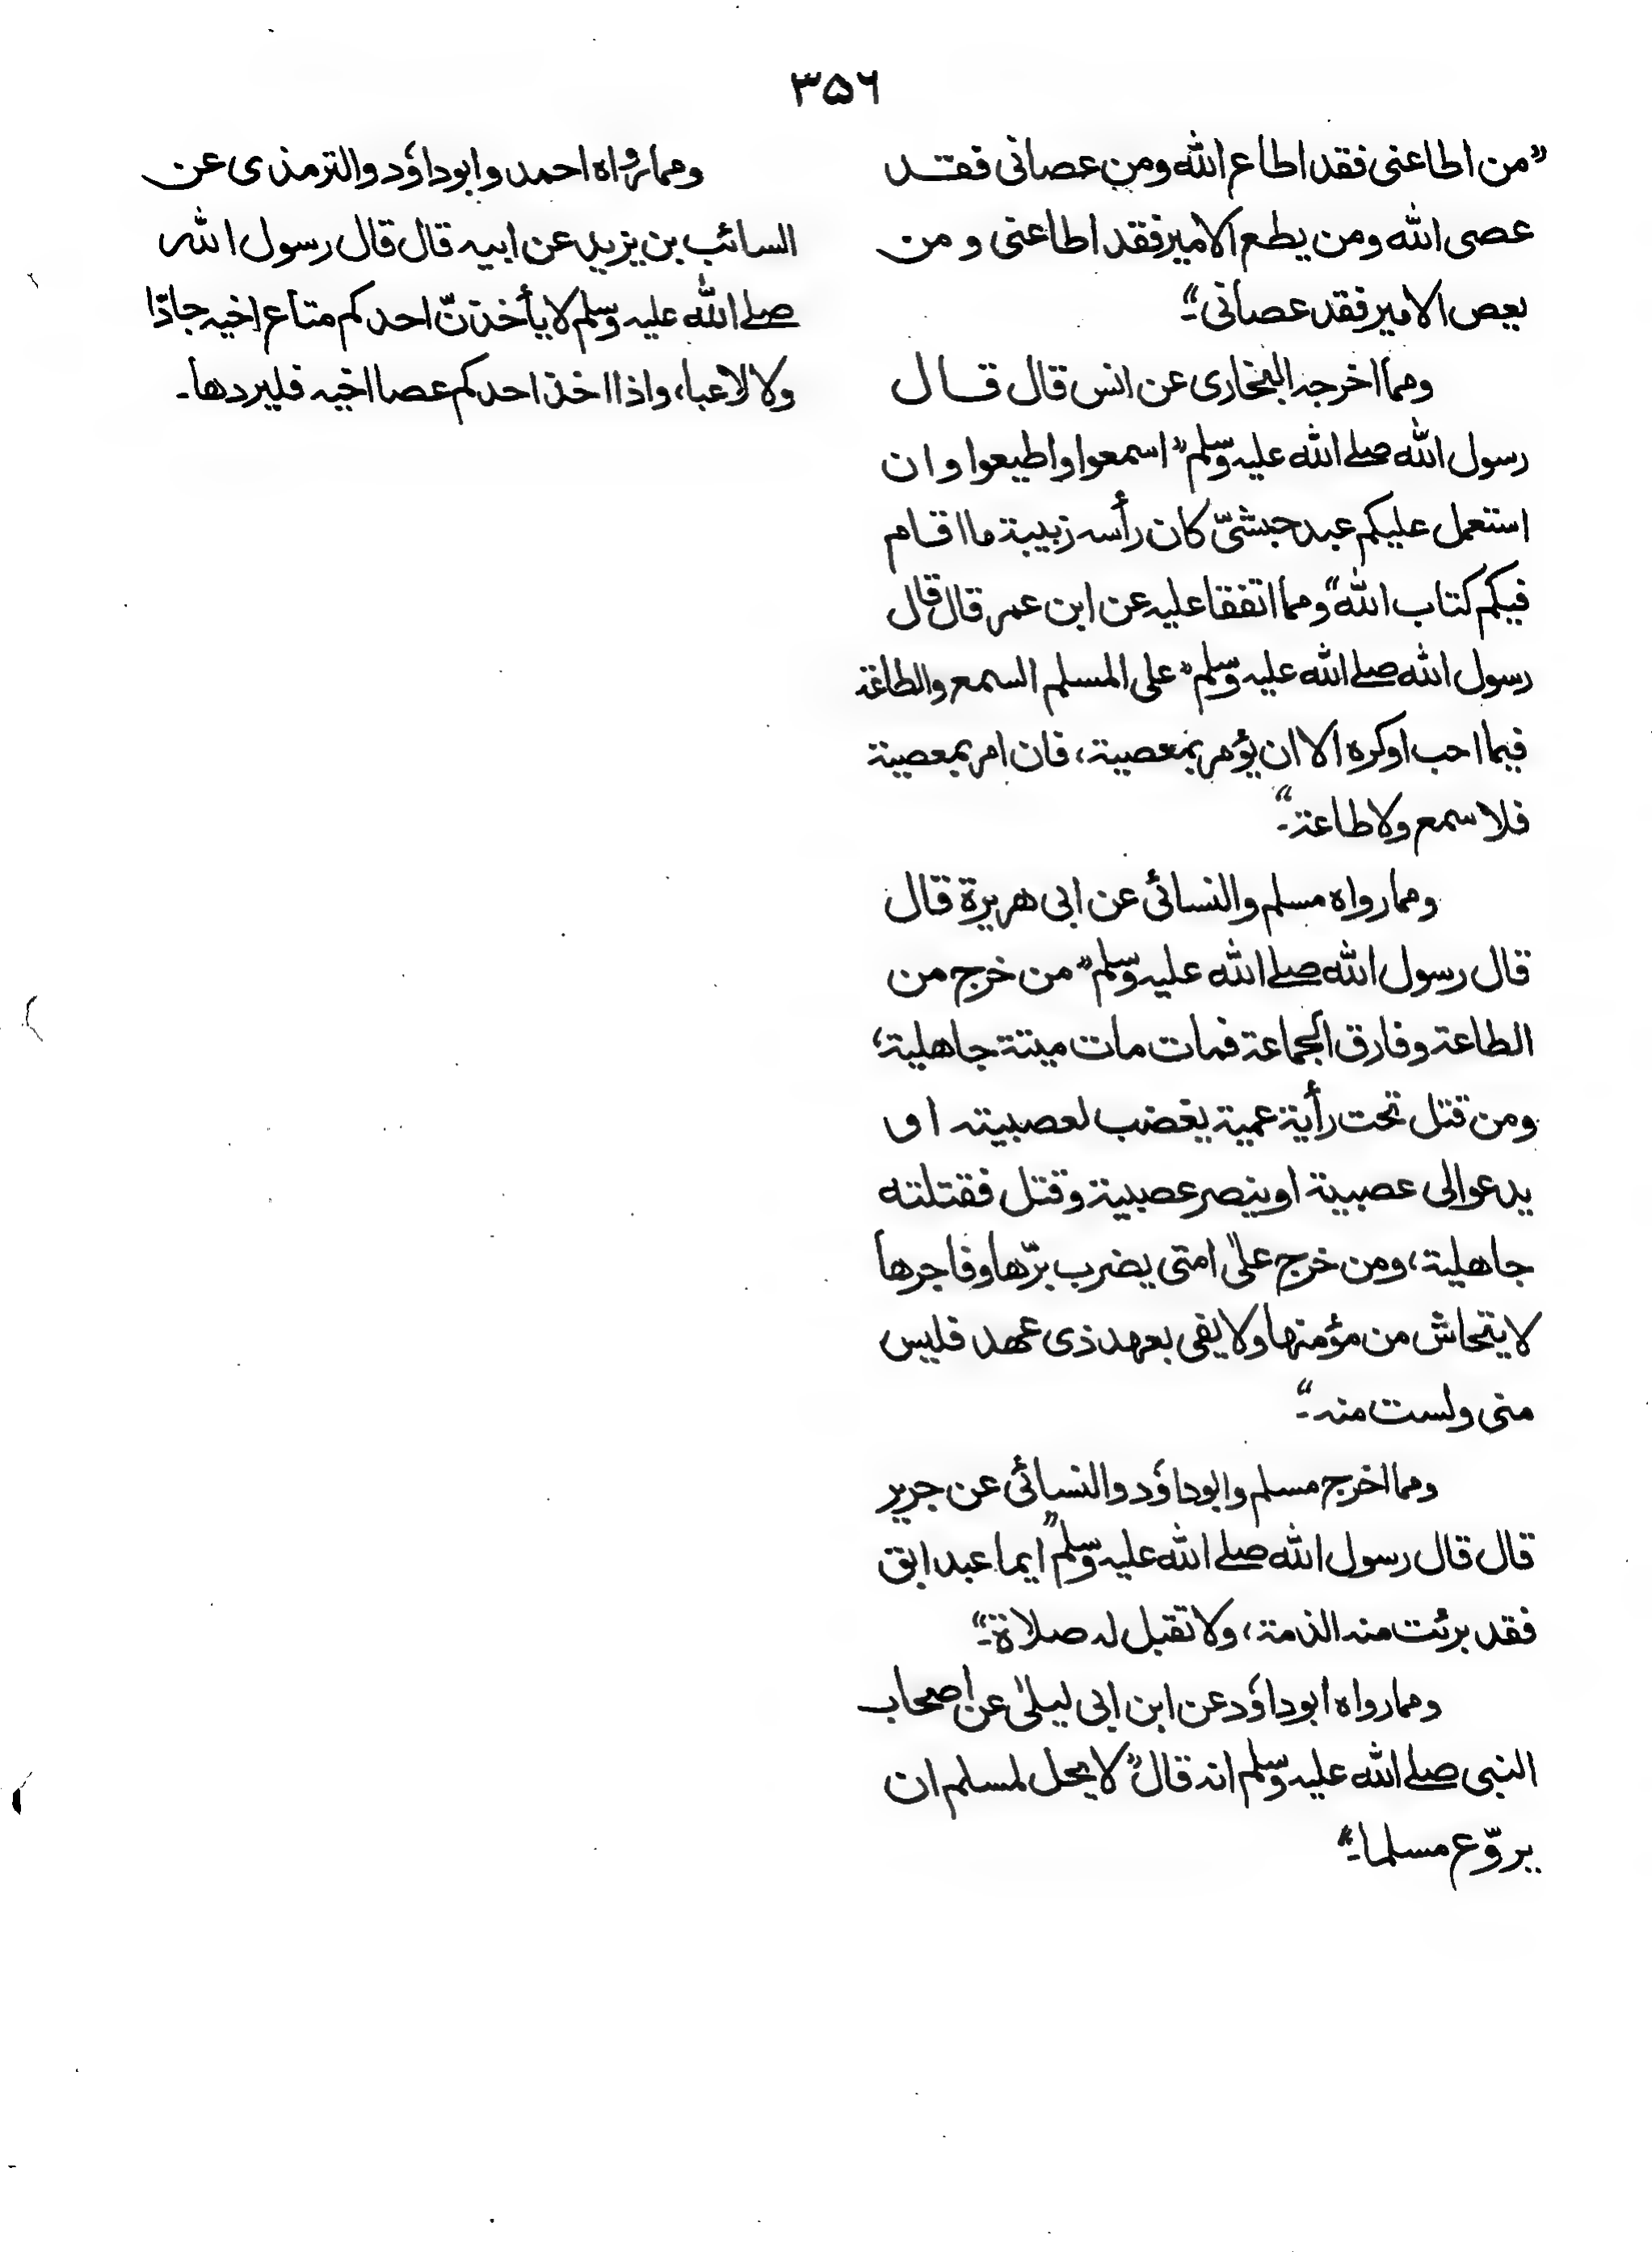 ۳۵۶
”من اطاعنی فقد اطاع الله ومن عصانی فقد
عصی الله ومن یطع الامیر فقد اطاعنی و من
بعص الامیر فقد عصانی“۔
ومما اخرجہ البخاری عن انس قال قال
رسول الله صلے الله علیہ وسلم ”اسمعوا واطیعوا وان
استعمل علیکم عبد حبشیّ کان رأسہ زبیبۃ ما اقام
فیکم کتاب الله“ ومما اتفقا علیہ عن ابن عمر قال قال
رسول الله صلے الله علیہ وسلم ”علی المسلم السمع والطاعۃ
فیما احب او کرہ الا ان یؤمر بمعصیۃ، فان امر بمعصیۃ
فلا سمع ولا طاعۃ“۔
ومما رواہ مسلم والنسائی عن ابی ھریرۃ قال
قال رسول الله صلے الله علیہ وسلم ”من خرج من
الطاعۃ وفارق الجماعۃ فمات مات میتۃ جاھلیۃ،
ومن قتل تحت رأیۃ عمیۃ یغضب لعصبیتہ او
یدعو الی عصبیۃ او ینصر عصبیۃ وقتل فقتلتہ
جاھلیۃ، ومن خرج علیٰ امتی یضرب برّھا وفاجرھا
لا یتحاش من مؤمنھا ولا یفی بعھد ذی عھد فلیس
منی ولست منہ“۔
ومما اخرج مسلم وابوداؤد والنسائی عن جریر
قال قال رسول الله صلے الله علیہ وسلم ”ایما عبد ابق
فقد برئت منہ الذمۃ، ولا تقبل لہ صلاۃ“۔
ومما رواہ ابوداؤد عن ابن ابی لیلیٰ عن اصحاب
النبی صلے الله علیہ وسلم انہ قال ”لا یحل لمسلم ان
یروّع مسلما“۔
ومما رواہ احمد وابوداؤد والترمذی عن
السائب بن یزید عن ابیہ قال قال رسول الله
صلے الله علیہ وسلم لا یأخذنّ احدکم متاع اخیہ جادّا
ولا لاعبا، واذا اخذ احدکم عصا اخیہ فلیردھا۔